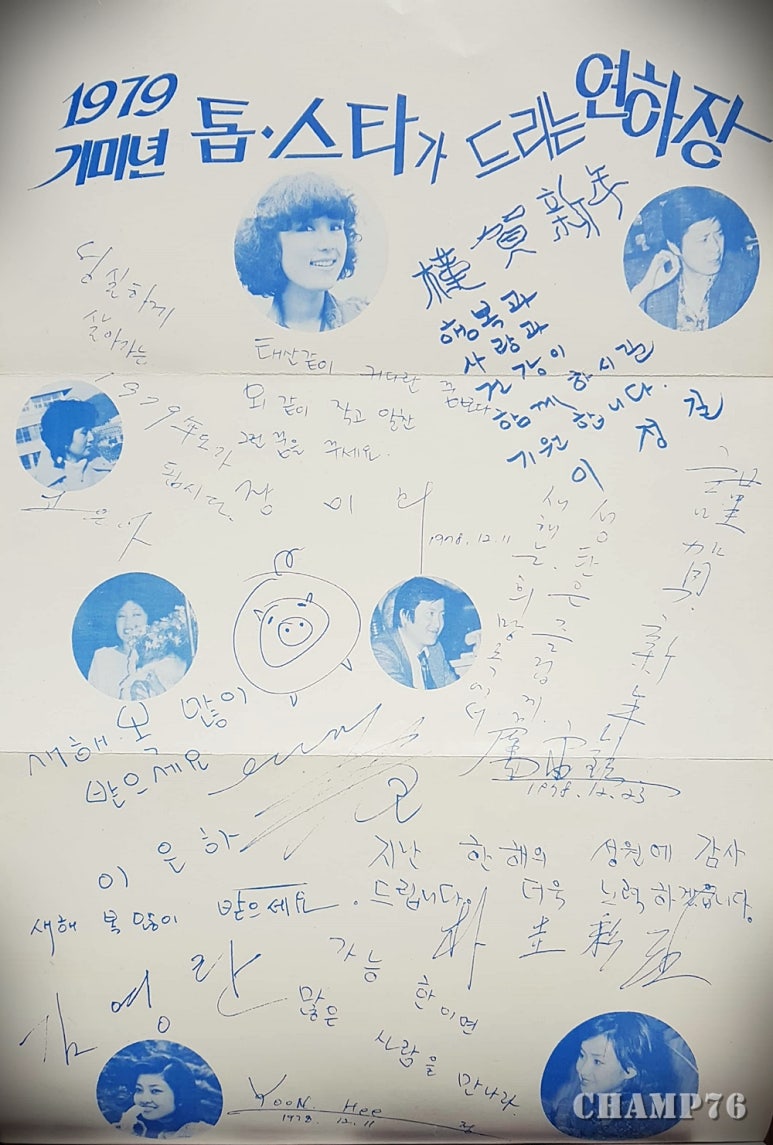 1979
기미년 톱·스타가 드리는 연하장
謹賀新年
행복과
사랑과
건강이
함께 하시길
기원합니다.
이정길
성실하게
살아가는
1979年도가
됩시다.
고은아
태산같이 커다란 꿈보다
뫼 같이 작고 알찬
그런 꿈을 꾸세요.
장미
1978.12.11
謹賀新年
성탄은 즐겁게.
새해는 희망 속에서
1978.12.23
새해 복 많이
받으세요
이은하
지난 한해의 성원에 감사
드립니다. 더욱 노력하겠읍니다.
새해 복 많이 받으세요.
김영란
가능한이면
많은 사람을 만나라.
YOON. Hee
1978. 12. 11
CHAMP76